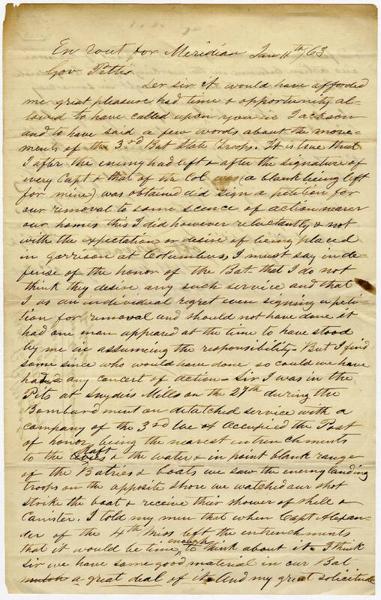 En rout for Meridian Jan 11th/63
Gov. Pettis
Der sir it would have afforded
me great pleasure had time & opportunity al-
owed to have called upon you in Jackson
and to have said a few words about the move-
ments of the 3rd Bat State Troops. It is true that
I after the enemy had left & after the signature of
every Capt & that of the Col (a blank being left
for mine) was obtained did sign a petition for
our removal to some scence of action nearer
our homes this I did however reluctantly & not
with the expectation or desire of being placed
in garrison at Columbus. I must say in de-
fense of the honor of the Bat. that I do not
think they desire any such service and that
I as an individual regret even signing a peti-
tion for removal and should not have done it
had one man appeared at the time to have stood
by me in assuming the responsibility. But I find
some since who would have done so could we have
had any concert of action. Sir I was in the
Pits at Snydirs Mills on the 27th during the
Bombardment on detatched service with a
company of the 3rd & Occupied the Post
of honor being the nearest entrenchments
to the raft & the water & in point blank range
of the Batries & boats we saw the enemy landing
troops on the opposite shore we watched our shot
strike the boat & receive their shower of shell &
canister. I told my men that when Capt Alexan-
der of the 4th Miss left the entrenchments
that it would be time enough to think about it. I think
sir we have some good material in our Bat
a great deal of it and my great solicitude